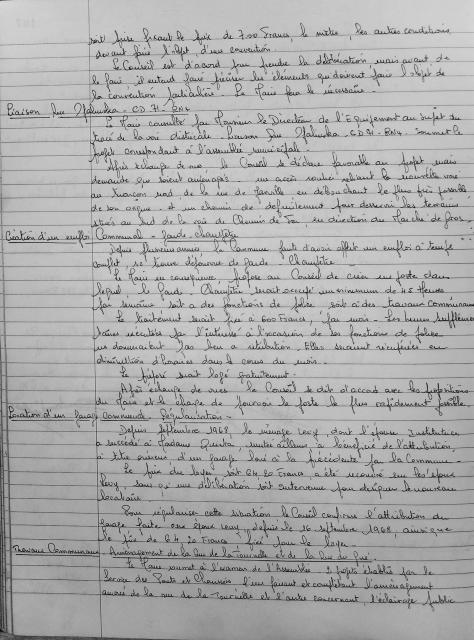 soit faire fixant le prix de 7.00 Francs, le mètre, les autres conditions
devant faire l'objet d'une convention.
Le Conseil est d'accord pour prendre la délibération, mais avant de
le faire, il entend faire préciser les éléments qui doivent faire l'objet de
la convention particulière. Le Maire fera le nécessaire.
Liaison rue - CD 71 - RN4
Le Maire consulté par Monsieur le Directeur de l'Equipement au sujet du
tracé de la voie - Liaison rue - CD 71 - RN4 - soumet le
projet correspondant à l'assemblée municipale.
Après échange de vues, le Conseil se déclare favorable au projet mais
demande que soient aménagés : un accès reliant la nouvelle voie
au tronçon nord de la rue de en débouchant le plus près possible
de son, et un chemin de pour desservir les terrains
situés au Sud de la voie de Chemin de Fer, en direction du Marché de Gros.
Création d'un emploi Communal - garde-champêtre
Depuis plusieurs années, la Commune faute d'avoir offert un emploi à temps
complet, se trouve dépourvue de garde Champêtre.
Le Maire en conséquence, propose au Conseil de créer un poste dans
lequel le Garde Champêtre serait occupé un minimum de 45 Heures
par semaine soit à des fonctions de police soit à des travaux communaux
Le traitement serait fixé à 600 Francs, par mois. Les heures supplémen-
taires exécutées par l'intéressé à l'occasion de ses fonctions de police
ne donneraient pas lieu à rétribution. Elles seraient récupérées en
diminution d'horaires dans le cours du mois.
Le préposé serait logé gratuitement.
Après échange de vues, le Conseil se dit d'accord avec les propositions
du Maire et le charge de pourvoir le poste le plus rapidement possible.
Location d'un garage communal - Régularisation -
Depuis septembre 1968, le ménage Levy dont l'épouse Institutrice
a succédé à Madame, a bénéficié de l'attribution,
à titre précaire d'un garage loué à la précédente par la Commune.
Le prix du loyer soit 64.20 Francs a été recouvré sur les époux
Levy, sans qu'une délibération soit intervenue pour désigner le nouveau
locataire.
Pour régulariser cette situation le Conseil confirme l'attribution du
garage faite aux époux Levy, depuis le 16 septembre 1968, ainsi que
le prix de 64.20 Francs fixé pour le loyer.
Travaux Communaux - Aménagement de la Rue de la Tournelle et de la Rue du :
Le Maire soumet à l'examen de l'Assemblée 2 projets établis par le
Service des Ponts et Chaussées l'un favorant et complétant l'aménagement
de la rue de la Tournelle et l'autre concernant, l'éclairage public